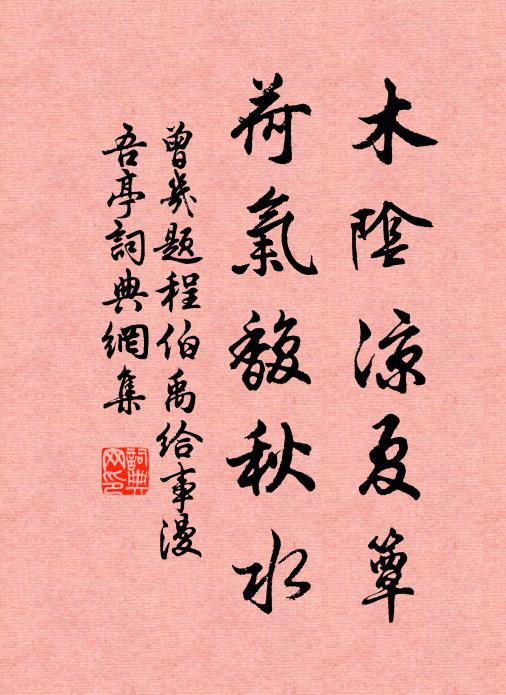 木陰涼夏簟
荷氣馥秋水
曾幾題程伯禹給事漫
吾亭詞典網集
詞典
网印